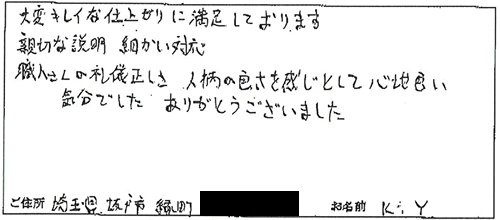 大変キレイな仕上がりに満足しております
親切な説明 細かい対応
職人さんの礼儀正しさ 人柄の良さを感じとして心地良い
気分でした ありがとうございました
ご住所 埼玉県 坂戸市 緑町 お名前 K.Y